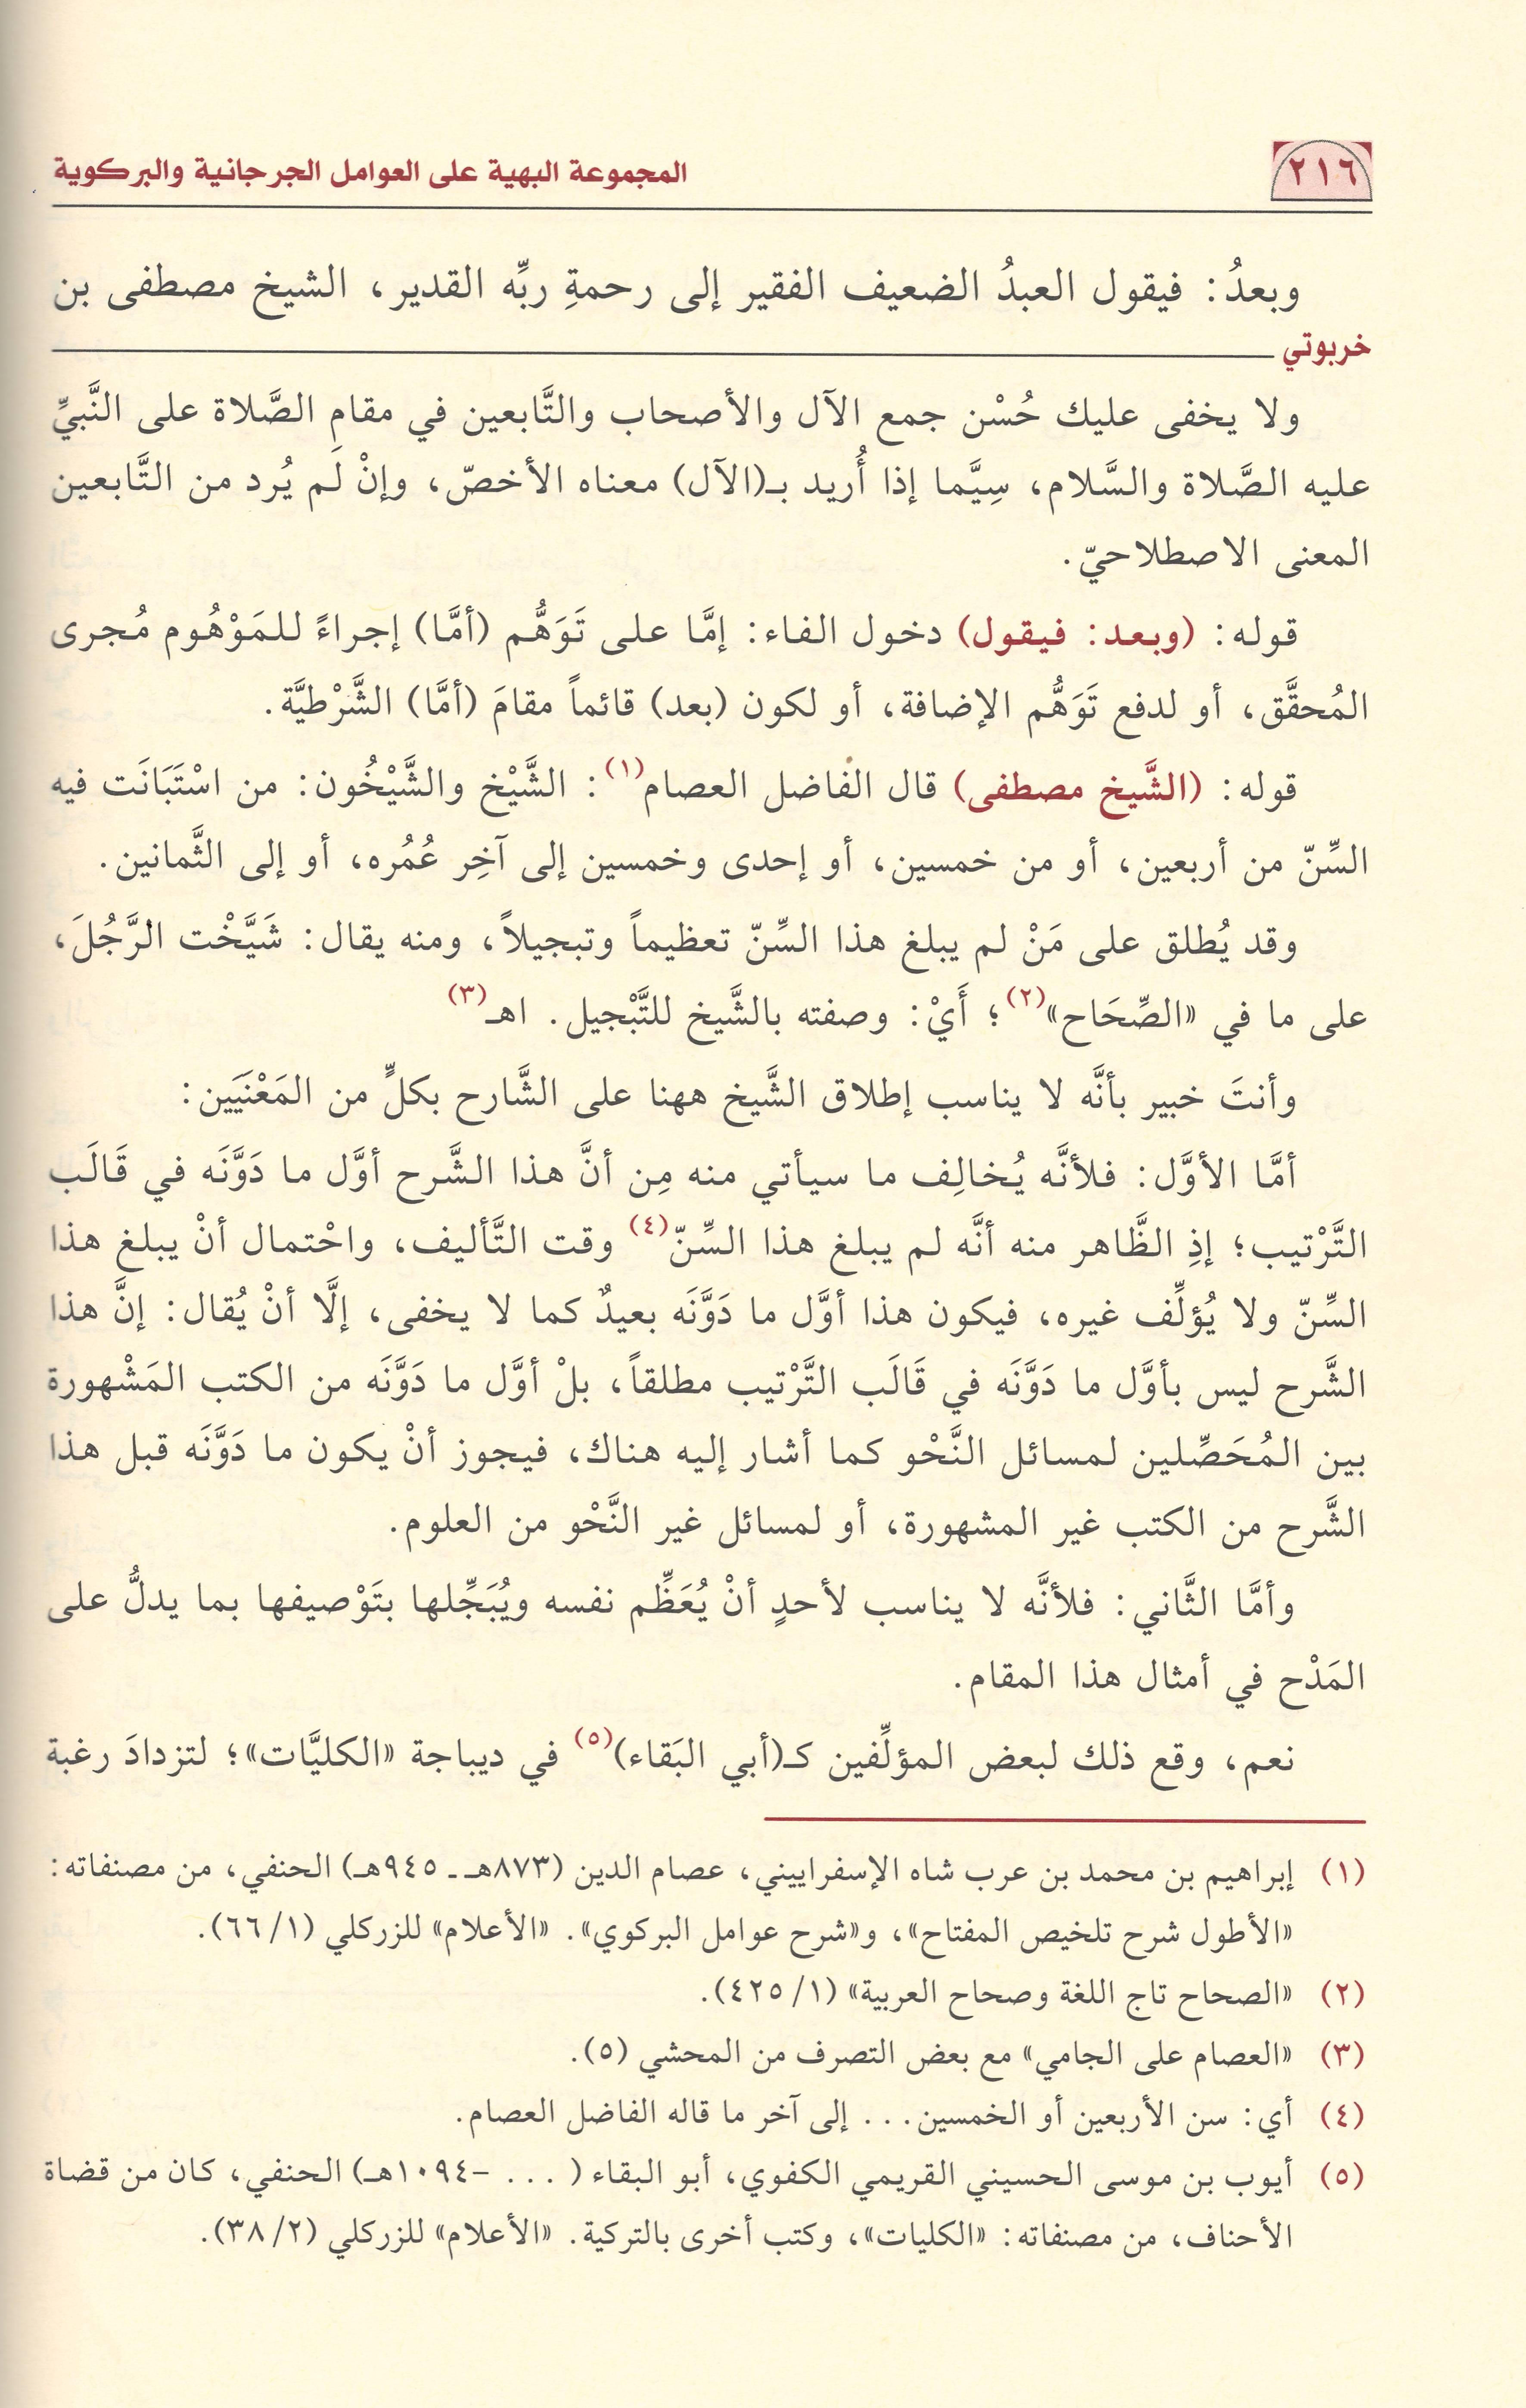 ٢١٦
المجموعة البهية على العوامل الجرجانية والبركوية
وبعدُ: فيقول العبدُ الضعيف الفقير إلى رحمةِ ربِّه القدير، الشيخ مصطفى بن
خربوتي
ولا يخفى عليك حُسْن جمع الآل والأصحاب والتَّابعين في مقامِ الصَّلاة على النَّبيِّ
عليه الصَّلاة والسَّلام، سِيَّما إذا أُريد بـ(الآل) معناه الأخصّ، وإنْ لَم يُرد من التَّابعين
المعنى الاصطلاحيّ.
قوله: (وبعد: فيقول) دخول الفاء: إمَّا على تَوَهُّم (أمَّا) إجراءً للمَوْهُوم مُجرى
المُحقَّق، أو لدفع تَوَهُّم الإضافة، أو لكون (بعد) قائماً مقامَ (أمَّا) الشَّرْطيَّة.
قوله: (الشَّيخ مصطفى) قال الفاضل العصام(١): الشَّيْخ والشَّيْخُون: من اسْتَبَانَت فيه
السِّنّ من أربعين، أو من خمسين، أو إحدى وخمسين إلى آخِر عُمُره، أو إلى الثَّمانين.
وقد يُطلق على مَنْ لم يبلغ هذا السِّنّ تعظيماً وتبجيلاً، ومنه يقال: شَيَّخْت الرَّجُلَ،
على ما في «الصِّحَاح»(٢)؛ أَيْ: وصفته بالشَّيخ للتَّبْجيل. اهـ(٣)
وأنتَ خبير بأنَّه لا يناسب إطلاق الشَّيخ ههنا على الشَّارح بكلٍّ من المَعْنَيَين:
أمَّا الأوَّل: فلأنَّه يُخالِف ما سيأتي منه مِن أنَّ هذا الشَّرح أوَّل ما دَوَّنَه في قَالَب
التَّرْتيب؛ إذِ الظَّاهر منه أنَّه لم يبلغ هذا السِّنّ(٤) وقت التَّأليف، واحْتمال أنْ يبلغ هذا
السِّنّ ولا يُؤلِّف غيره، فيكون هذا أوَّل ما دَوَّنَه بعيدٌ كما لا يخفى، إلَّا أنْ يُقال: إنَّ هذا
الشَّرح ليس بأوَّل ما دَوَّنَه في قَالَب التَّرْتيب مطلقاً، بلْ أوَّل ما دَوَّنَه من الكتب المَشْهورة
بين المُحَصِّلين لمسائل النَّحْو كما أشار إليه هناك، فيجوز أنْ يكون ما دَوَّنَه قبل هذا
الشَّرح من الكتب غير المشهورة، أو لمسائل غير النَّحْو من العلوم.
وأمَّا الثَّاني: فلأنَّه لا يناسب لأحدٍ أنْ يُعَظِّم نفسه ويُبَجِّلها بتَوْصيفها بما يدلُّ على
المَدْح في أمثال هذا المقام.
نعم، وقع ذلك لبعض المؤلِّفين كـ(أبي البَقاء)(٥) في ديباجة «الكليَّات»؛ لتزدادَ رغبة
(١) إبراهيم بن محمد بن عرب شاه الإسفراييني، عصام الدين (٨٧٣هـ ـ ٩٤٥هـ) الحنفي، من مصنفاته:
«الأطول شرح تلخيص المفتاح»، و«شرح عوامل البركوي». «الأعلام» للزركلي (١/ ٦٦).
(٢) «الصحاح تاج اللغة وصحاح العربية» (١/ ٤٢٥).
(٣) «العصام على الجامي» مع بعض التصرف من المحشي (٥).
(٤) أي: سن الأربعين أو الخمسين... إلى آخر ما قاله الفاضل العصام.
(٥) أيوب بن موسى الحسيني القريمي الكفوي، أبو البقاء (... -١٠٩٤هـ) الحنفي، كان من قضاة
الأحناف، من مصنفاته: «الكليات»، وكتب أخرى بالتركية. «الأعلام» للزركلي (٢/ ٣٨).